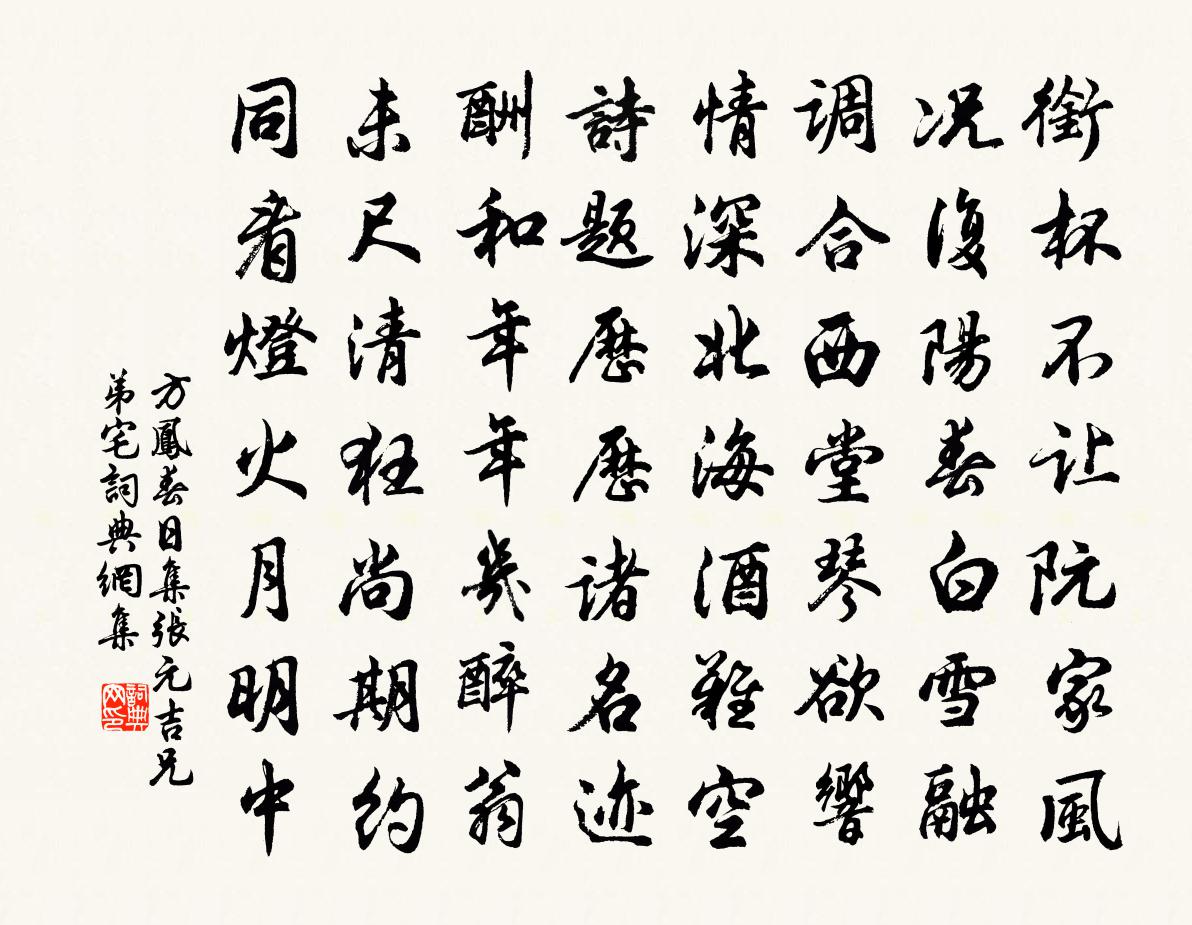 銜杯不让阮家風
况復陽春白雪融
调合西堂琴欲響
情深北海酒難空
詩题歷歷诸名迹
酬和年年幾醉翁
未尺清狂尚期约
同看燈火月明中
方鳳春日集張元吉兄
弟宅詞典網集
詞典
网印